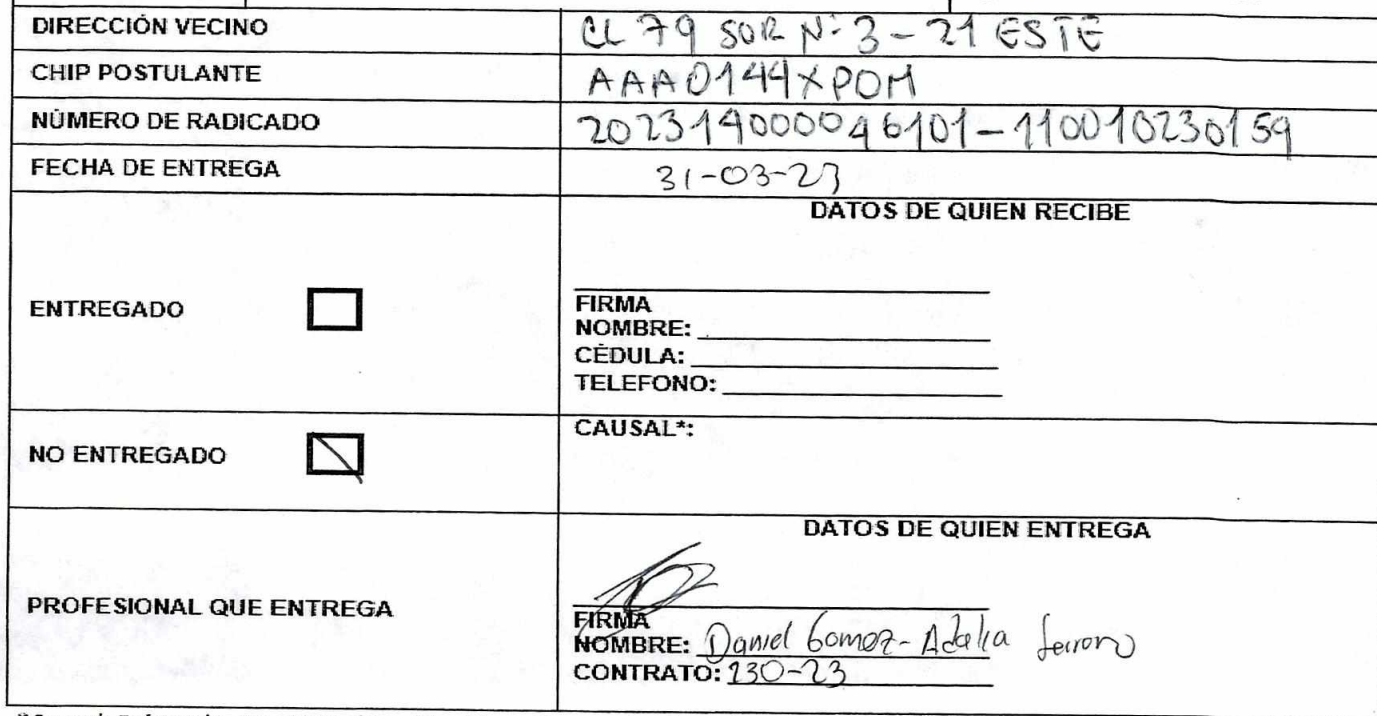 DIRECCIÓN VECINO CL 79 SUR N° 3 - 21 ESTE
CHIP POSTULANTE AAA0144XPOM
NÚMERO DE RADICADO 202314000046101-110010230159
FECHA DE ENTREGA 31-03-23
DATOS DE QUIEN RECIBE
ENTREGADO
FIRMA
NOMBRE:
CÉDULA:
TELEFONO:
NO ENTREGADO
CAUSAL*:
DATOS DE QUIEN ENTREGA
PROFESIONAL QUE ENTREGA
FIRMA
NOMBRE: Daniel Gomez - Adalia
CONTRATO: 230-23